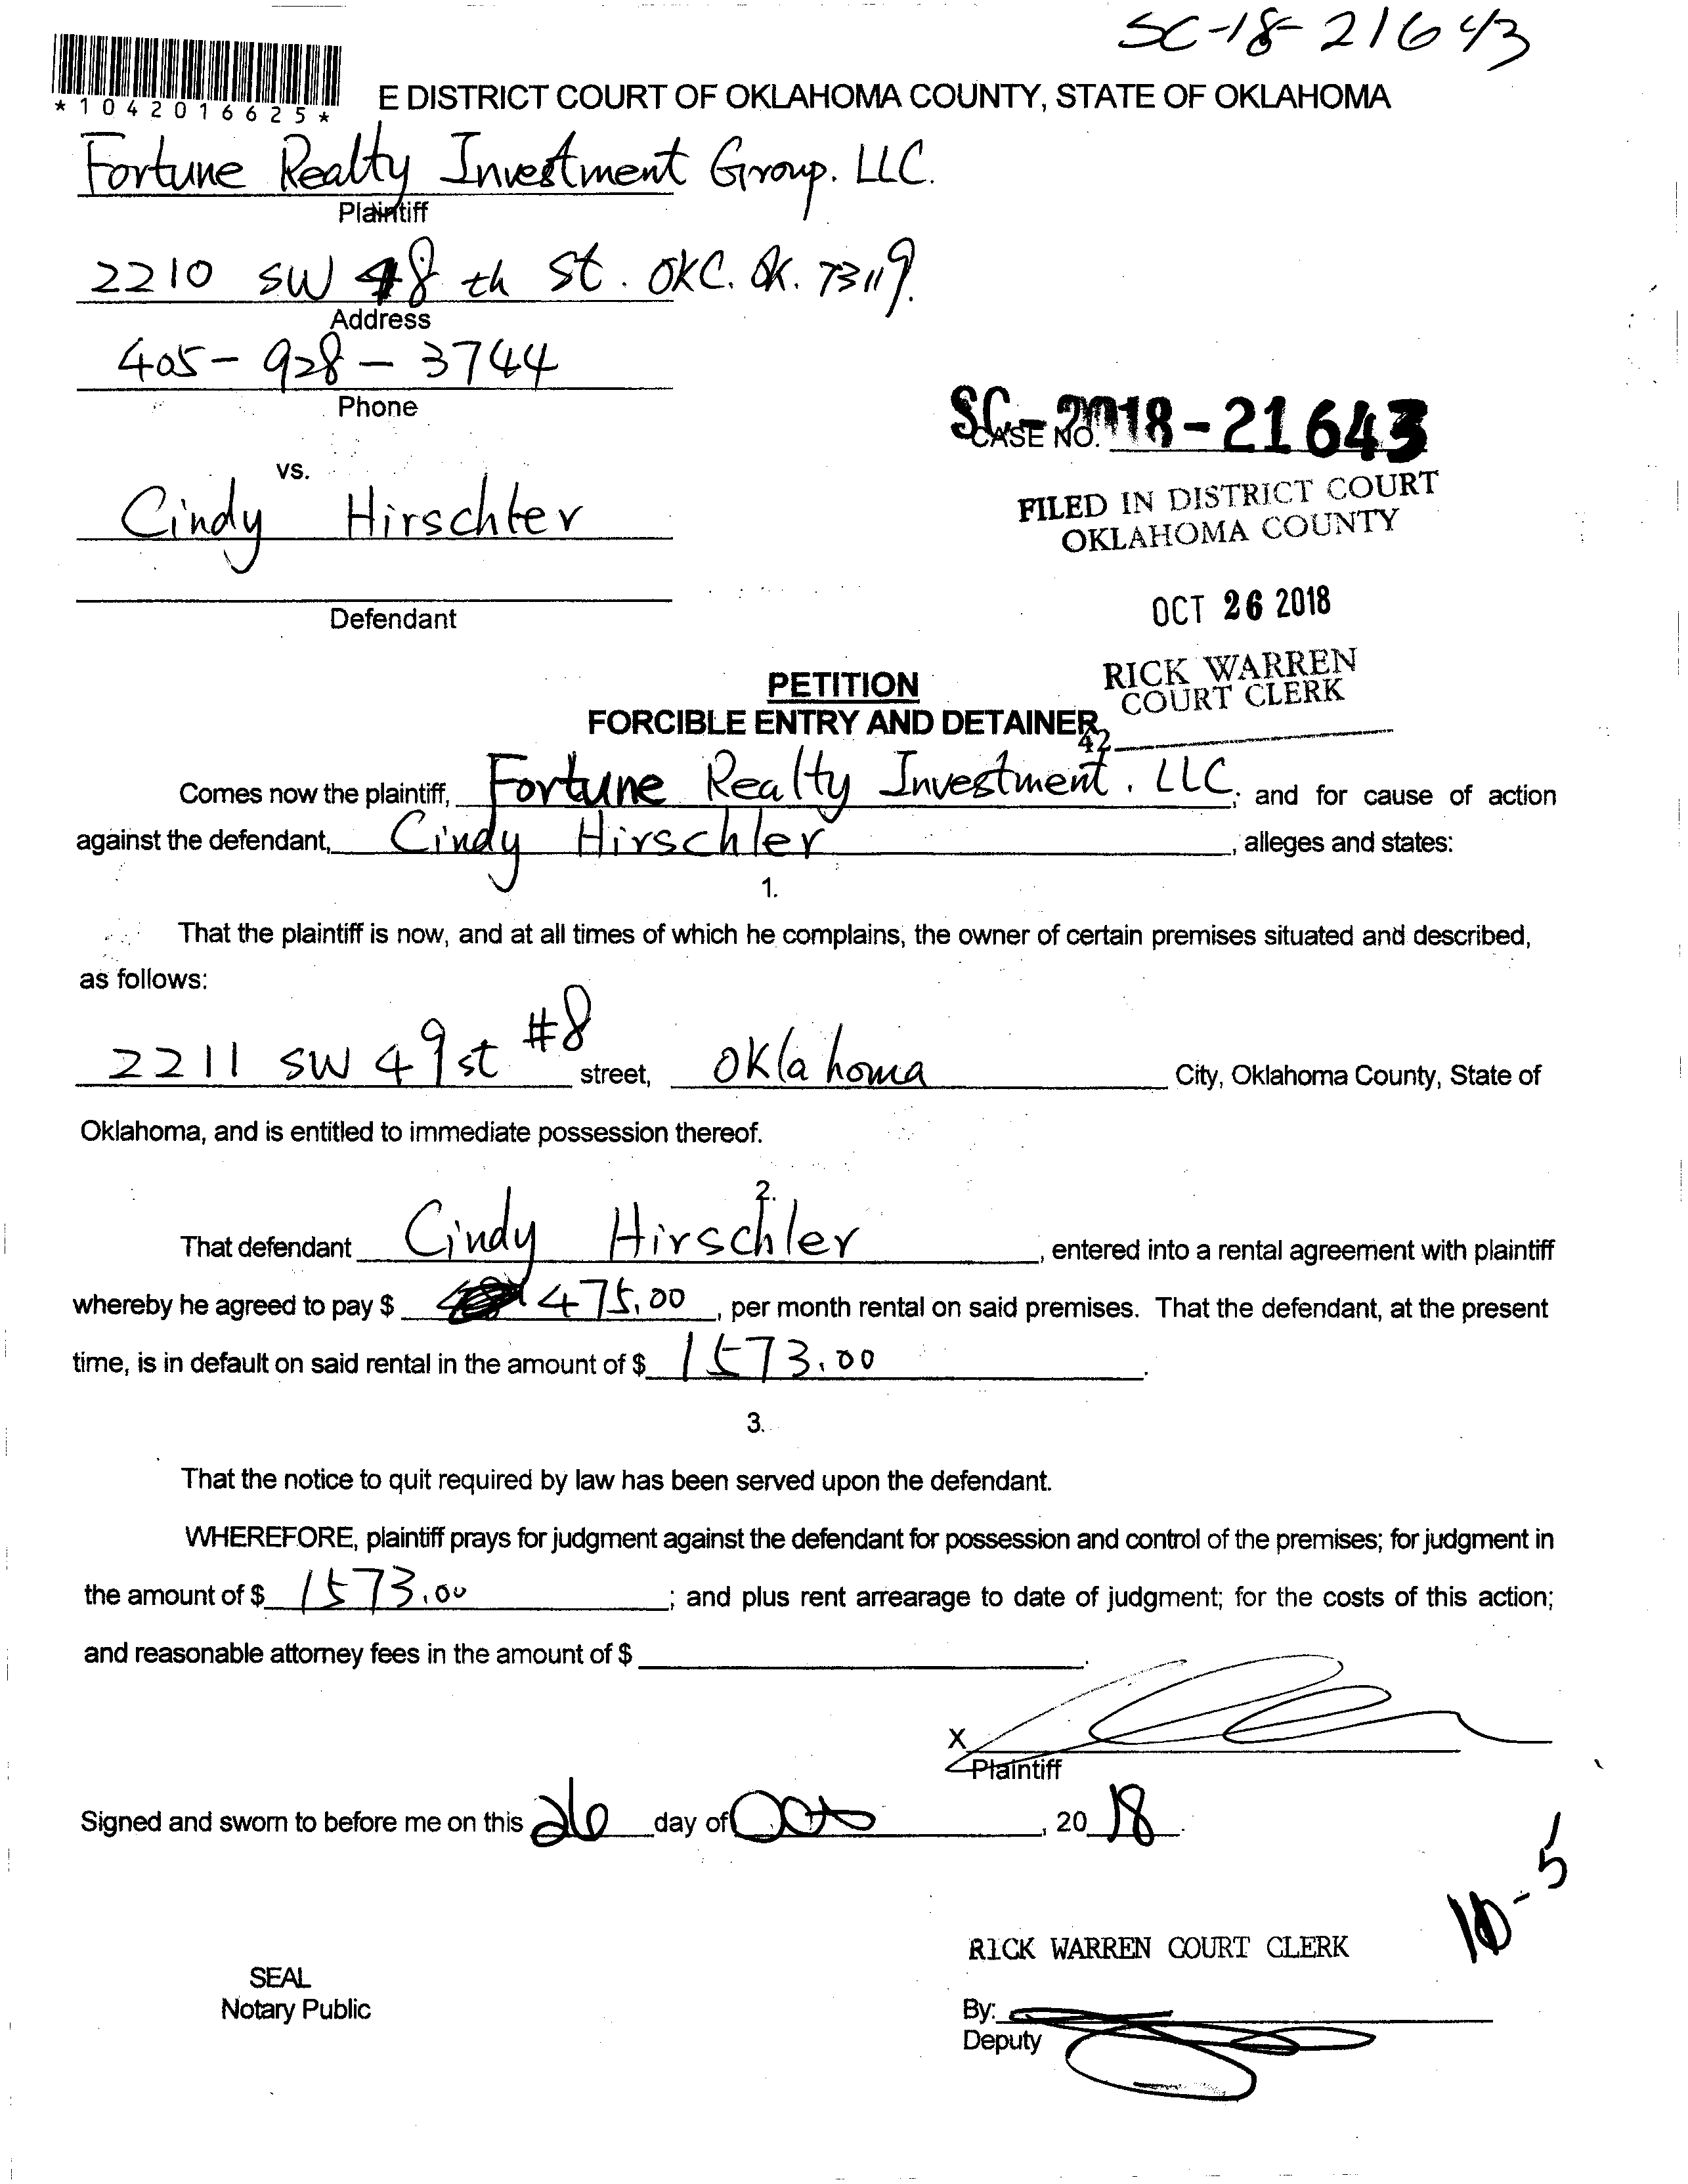 SC-18-21643
*1042016625*
E DISTRICT COURT OF OKLAHOMA COUNTY, STATE OF OKLAHOMA
Fortune Realty Investment Group. LLC.
Plaintiff
2210 SW 48 th St. OKC. OK. 73119.
Address
405-928-3744
Phone
SC-2018-21643
CASE NO.
vs.
FILED IN DISTRICT COURT
OKLAHOMA COUNTY
Cindy Hirschler
OCT 26 2018
Defendant
RICK WARREN
COURT CLERK
PETITION
FORCIBLE ENTRY AND DETAINER
42
Comes now the plaintiff, Fortune Realty Investment. LLC, and for cause of action
against the defendant, Cindy Hirschler, alleges and states:
1.
That the plaintiff is now, and at all times of which he complains, the owner of certain premises situated and described,
as follows:
2211 SW 49 st #8 street, Oklahoma City, Oklahoma County, State of
Oklahoma, and is entitled to immediate possession thereof.
2.
That defendant Cindy Hirschler, entered into a rental agreement with plaintiff
whereby he agreed to pay $ 475.00, per month rental on said premises. That the defendant, at the present
time, is in default on said rental in the amount of $ 1573.00.
3.
That the notice to quit required by law has been served upon the defendant.
WHEREFORE, plaintiff prays for judgment against the defendant for possession and control of the premises; for judgment in
the amount of $ 1573.00; and plus rent arrearage to date of judgment; for the costs of this action;
and reasonable attorney fees in the amount of $
X
Plaintiff
Signed and sworn to before me on this 26 day of Oct, 20 18.
10-5
RICK WARREN COURT CLERK
SEAL
Notary Public
By:
Deputy